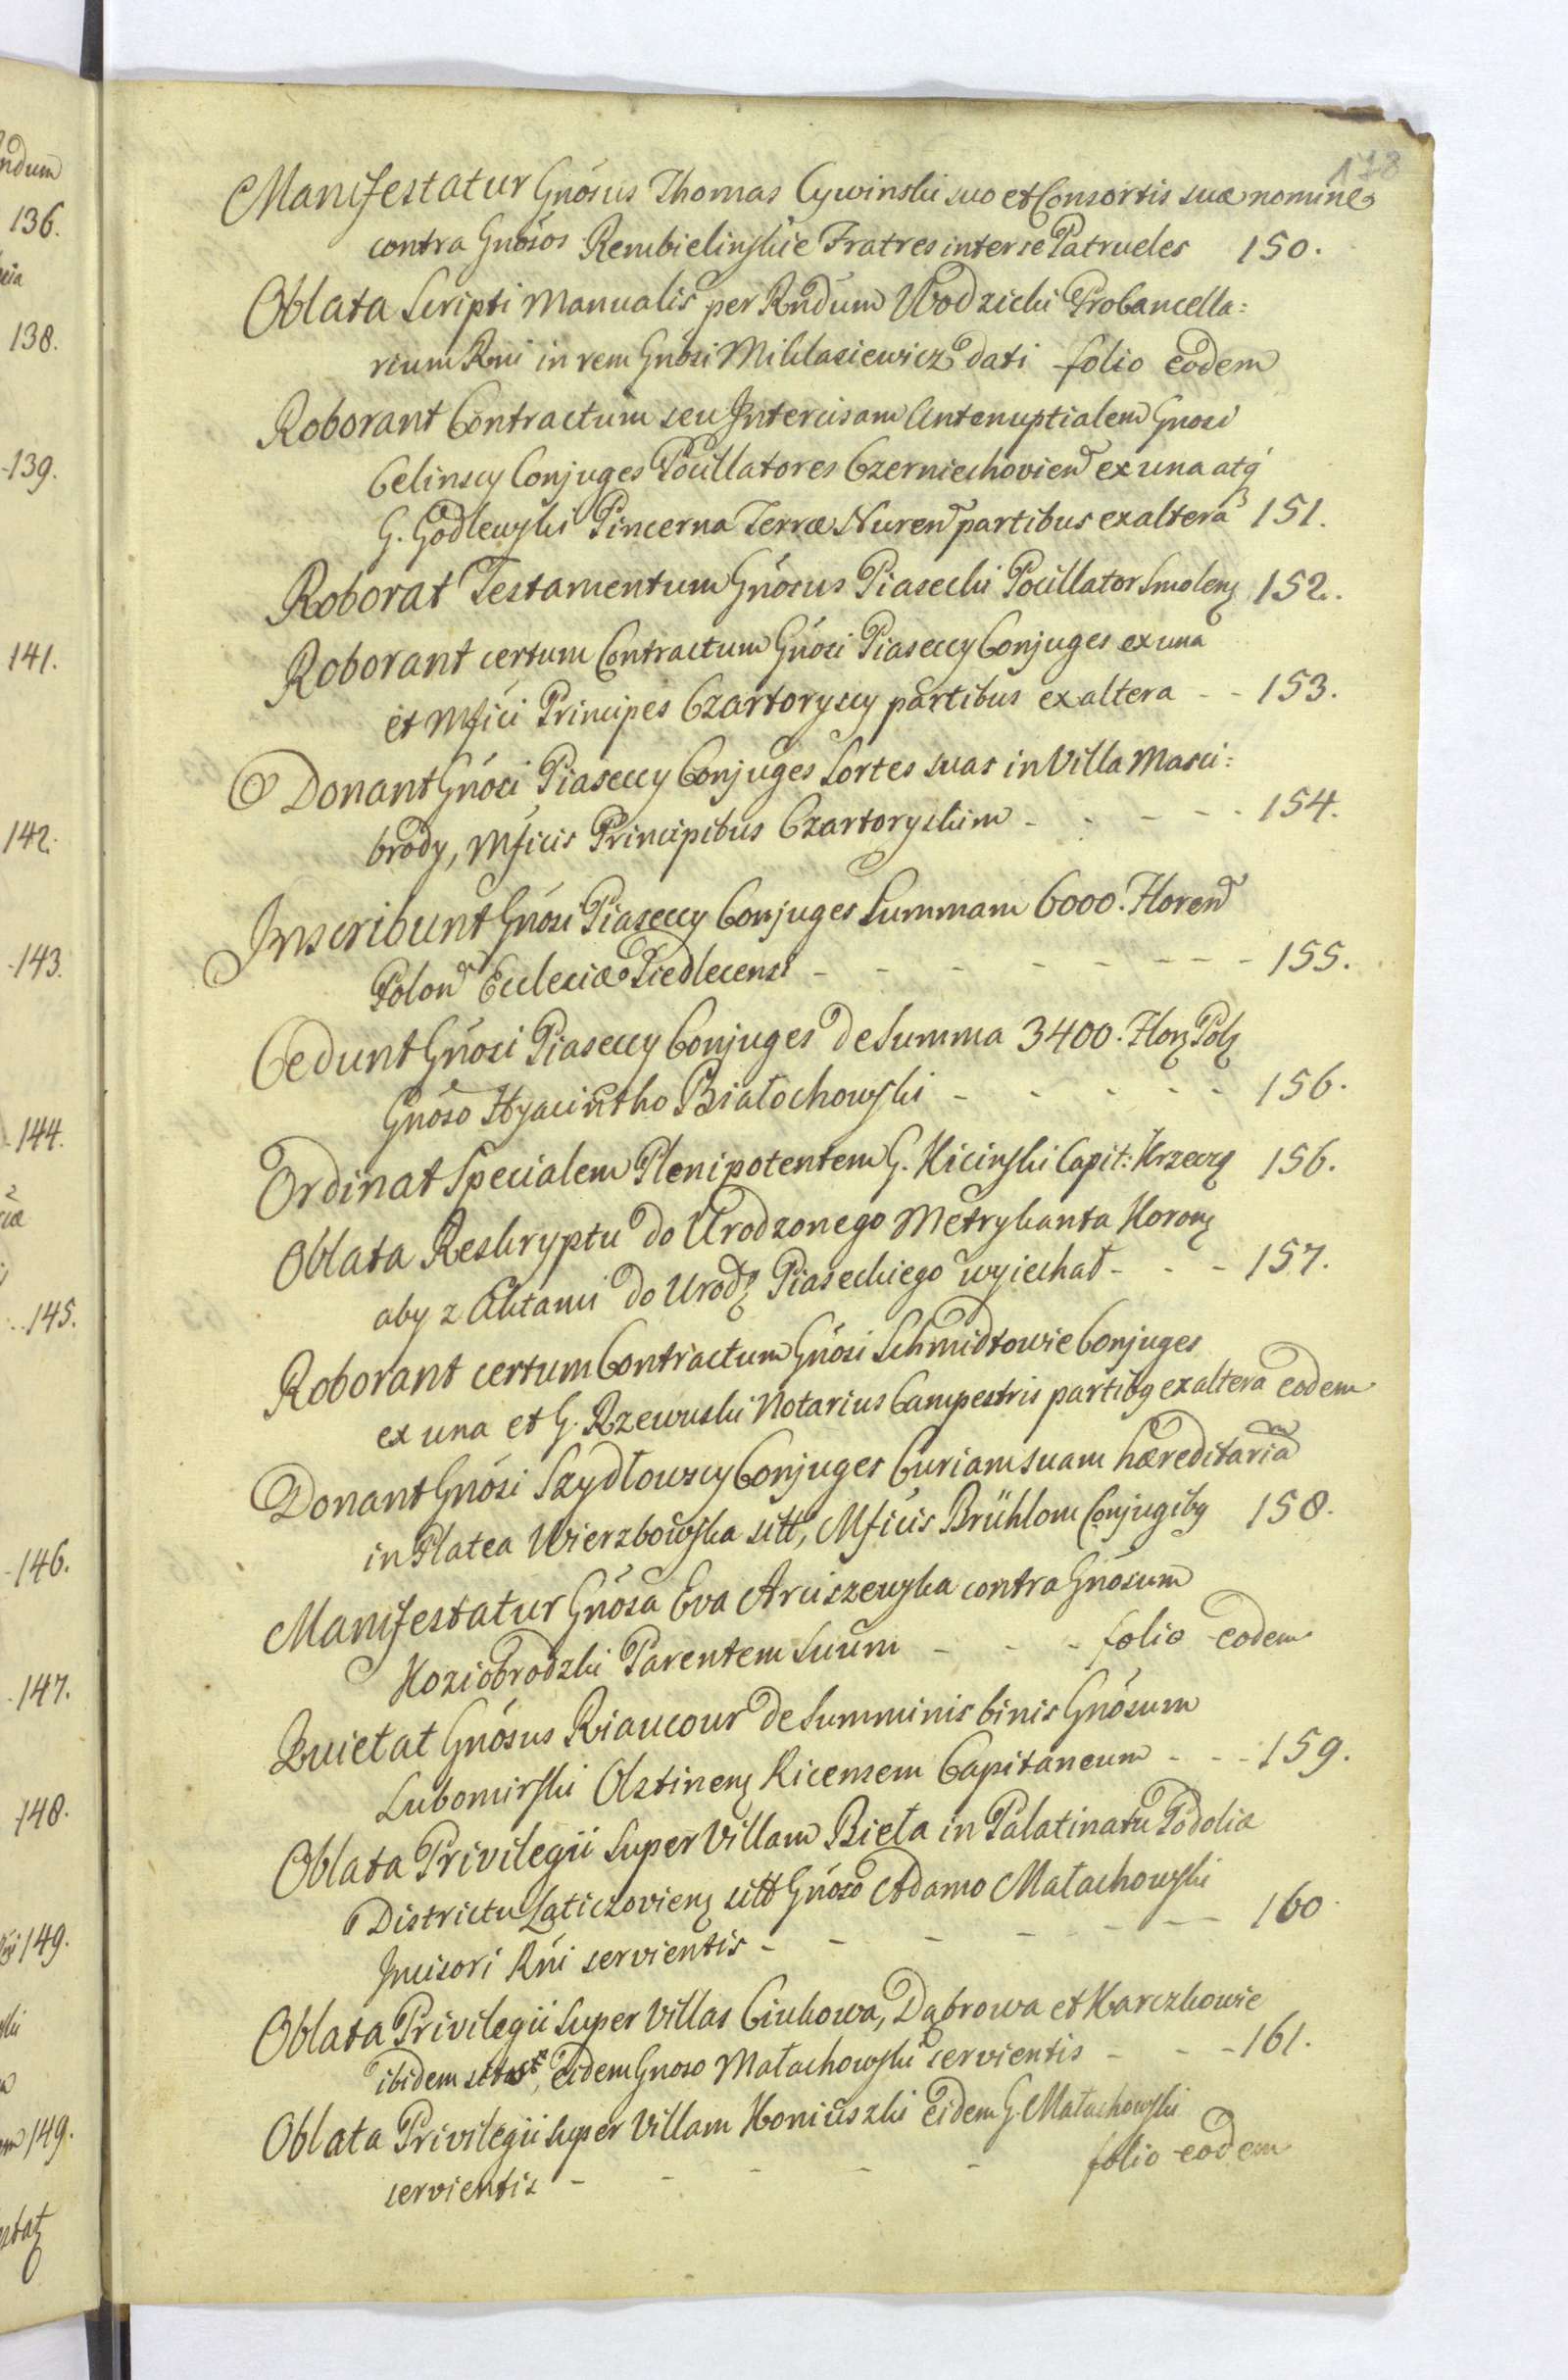 178
Manifestatur Gnosus Thomas Cywinski suo et Consortis suæ nomine
contra Gnosos Rembielinskie Fratres inter se Patrueles 150.
Oblata Scripti Manualis per Rndum Wodzicki Procancella:
rium Rni in rem Gnosi Miklasiewicz dati folio eodem
Roborant Contractum seu Intercisam Antenuptialem Gnosi
Celinscy Conjuges Pocillatores Czerniechovien ex una atq
G. Godlewski Pincerna Terræ Nuren partibus ex altera 151.
Roborat Testamentum Gnosus Piasecki Pocillator Smolens 152.
Roborant certum Contractum Gnosi Piaseccy Conjuges ex una
et Mfici Principes Czartoryscy partibus ex altera - - 153.
Donant Gnosi Piaseccy Conjuges Sortes suas in Villa Masci:
brody, Mficis Principibus Czartoryskim - - - - - 154.
Inscribunt Gnosi Piaseccy Conjuges Summam 6000. Floren
Polon Ecclesiæ Siedlecensi - - - - - - - - 155.
Cedunt Gnosi Piaseccy Conjuges de Summa 3400. Flor Pol
Gnoso Hyacintho Białochowski - - - - - 156.
Ordinat Specialem Plenipotentem G. Kicinski Capit: Krzecz 156.
Oblata Reskryptu do Urodzonego Metrykanta Koron
aby z Aktami do Urodz Piaseckiego wyiechał - - - 157.
Roborant certum Contractum Gnosi Schmidtowie Conjuges
ex una et G. Rzewuski Notarius Campestris partibq ex altera eodem
Donant Gnosi Szydłowscy Conjuges Curiam suam hæreditaria
in Platea Wierzbowska sitt, Mficis Brühlom Conjugibq 158.
Manifestatur Gnosa Eva Arciszewska contra Gnosum
Koziobrodzki Parentem Suum - - - folio eodem
Quietat Gnosus Riaucour de Summinis binis Gnosum
Lubomirski Olstinen Ricensem Capitaneum - - - 159.
Oblata Privilegii Super Villam Bieła in Palatinatu Podolia
Districtu Laticzovien sitt Gnoso Adamo Małachowski
Incisori Rni servientis - - - - - - - 160.
Oblata Privilegii Super Villas Ciukowa, Dąbrowa et Karczkowie
ibidem sitas, eidem Gnoso Małachowski servientis - - - 161.
Oblata Privilegii Super Villam Koniuszki eidem G. Małachowski
servientis - - - - - folio eodem
ndum
136.
138.
139.
141.
142.
143.
144.
145.
146.
147.
148.
149.
149.